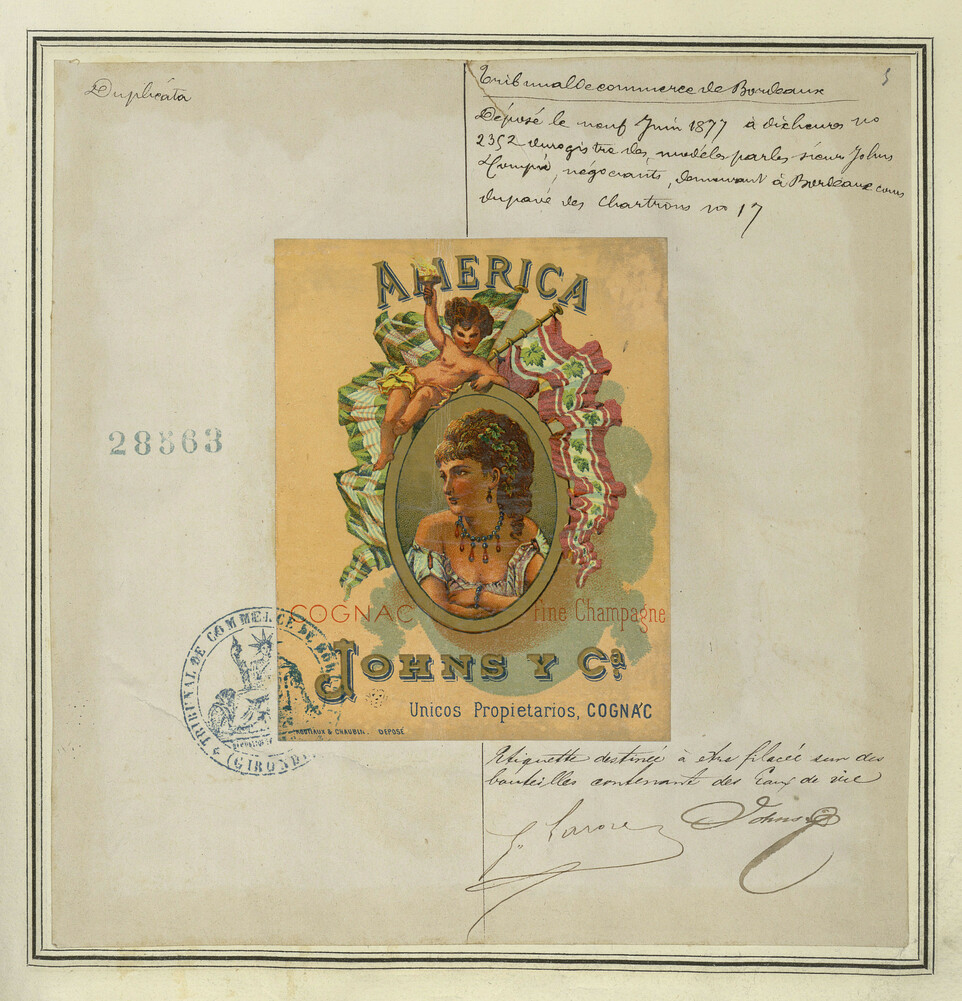 Duplicata
5
Tribunal de commerce de Bordeaux
Déposé le neuf Juin 1877 à dix heures no
2352 du registre des modèles par les sieurs Johns
& Compie, négociants, demeurant à Bordeaux cours
du pavé des Chartrons no 17
AMERICA
28563
COGNAC Fine Champagne
JOHNS Y Ca.
Unicos Propietarios, COGNÁC
& CHAUBIN. DÉPOSÉ
TRIBUNAL DE COMMERCE DE BORD
(GIRONDE
Etiquette destinée à être placée sur des
bouteilles contenant des Eaux de vie
Johns